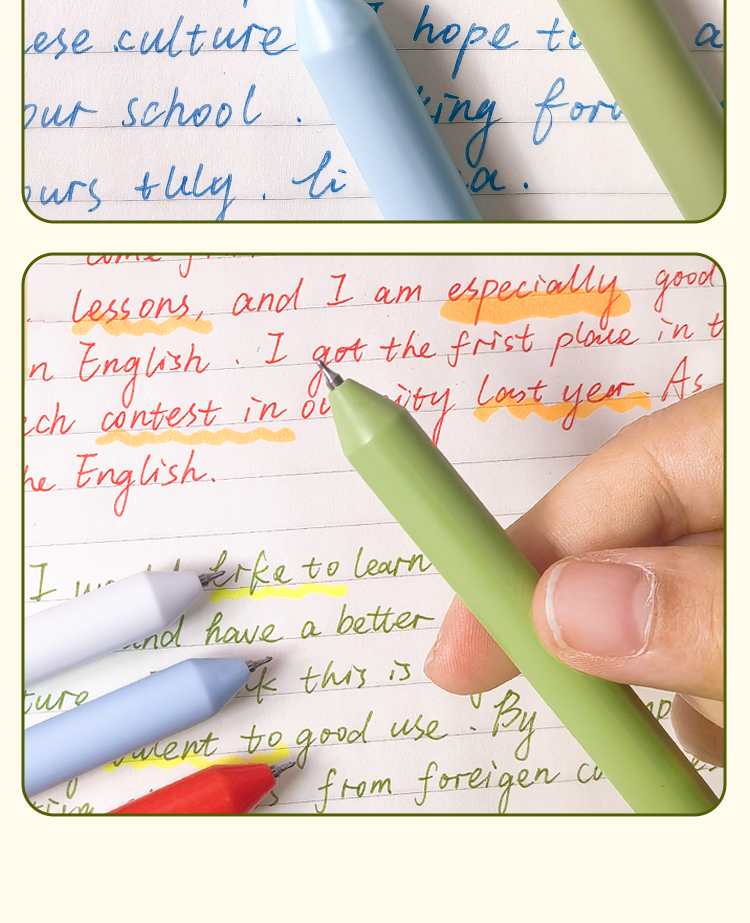 ese culture I hope to a
our school . king forw
ours tuly . li a .
lessons, and I am especially good
n English . I got the frist place in t
ch contest in ou ity last year. As
he English.
I like to learn
and have a better
ture this is
to good use . By
from foreigen cu